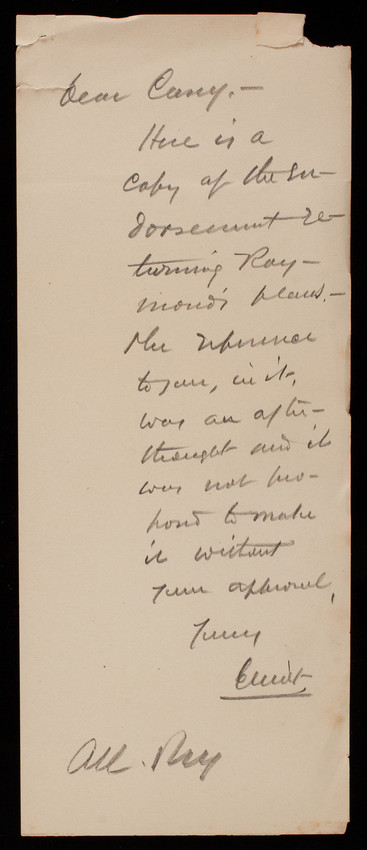 Dear Casey. —
Here is a
copy of the en-
dorsement re-
turning Ray-
mond's plans. —
The reference
to you, in it,
was an after-
thought and it
was not pro-
posed to make
it without
your approval,
Yours
All.